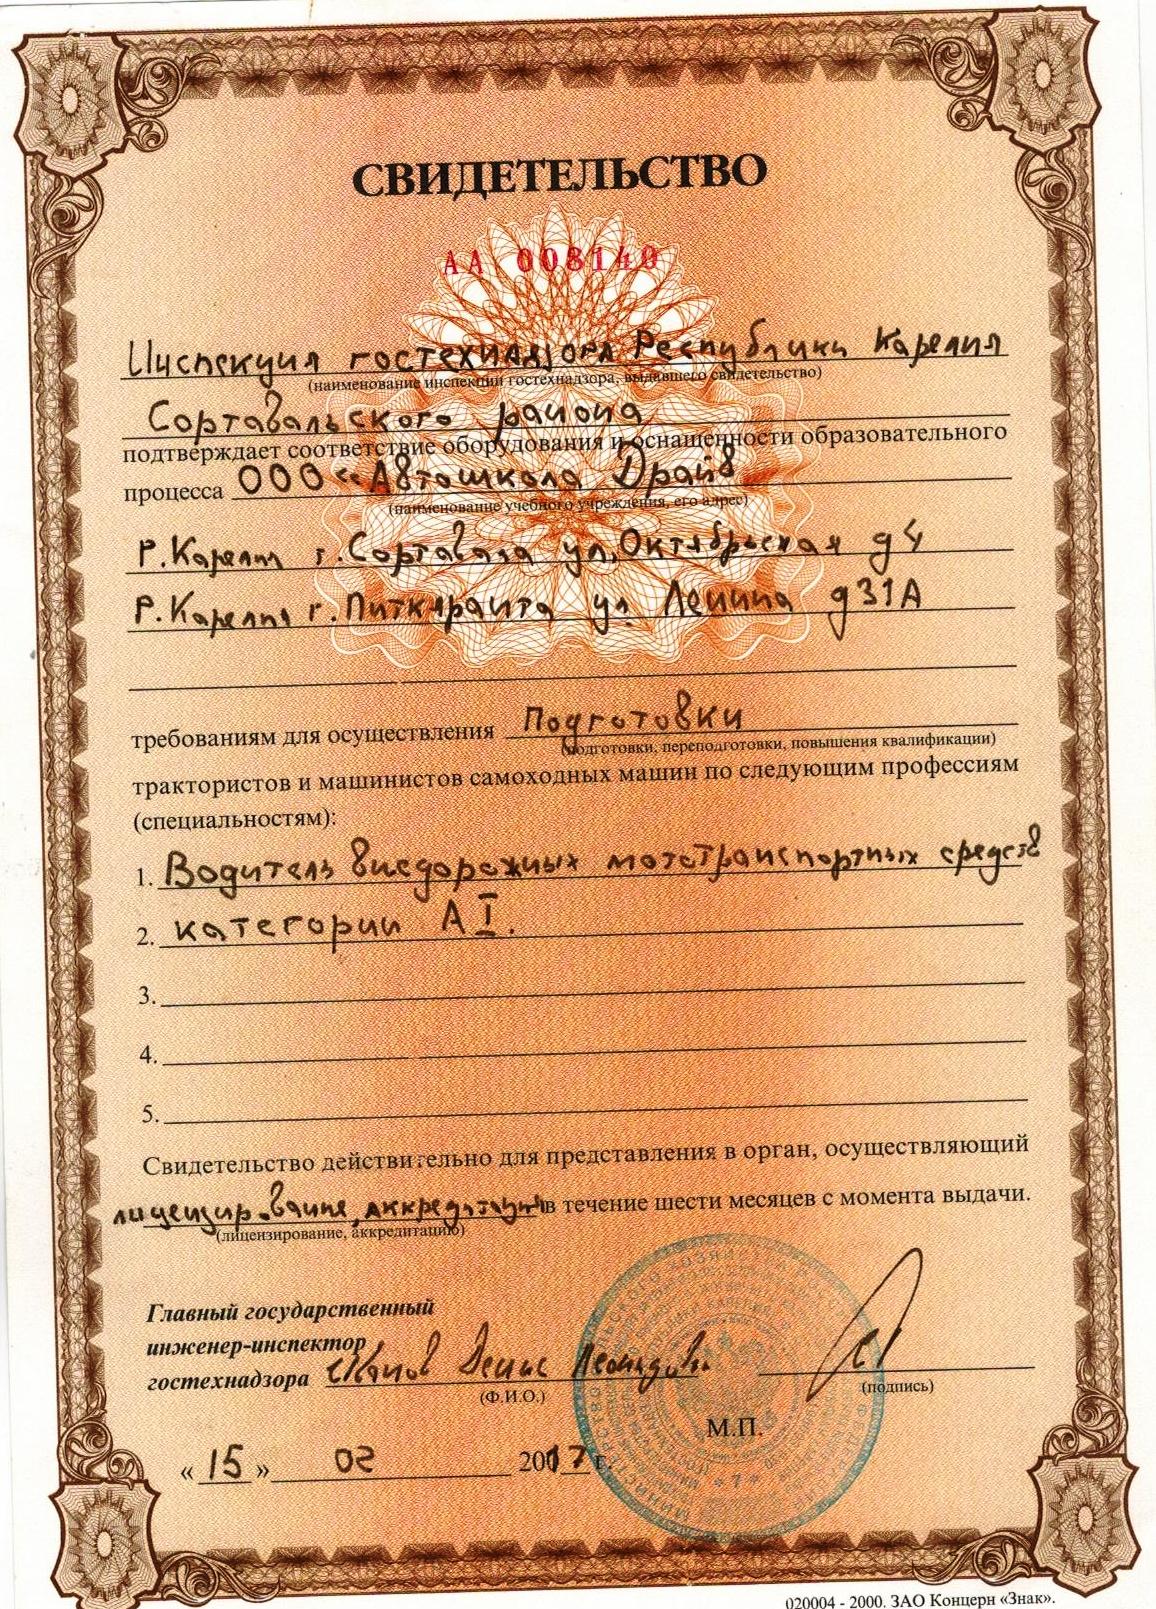 СВИДЕТЕЛЬСТВО
АА 008140
Инспекция гостехнадзора Республики Карелия
(наименование инспекции гостехнадзора, выдавшего свидетельство)
Сортавальского района
подтверждает соответствие оборудования и оснащенности образовательного
процесса ООО «Автошкола Драйв
(наименование учебного учреждения, его адрес)
Р.Карелия г.Сортавала ул,Октябрьская д4
Р.Карелия г.Питкяранта ул Ленина д31А
требованиям для осуществления Подготовки
(подготовки, переподготовки, повышения квалификации)
трактористов и машинистов самоходных машин по следующим профессиям
(специальностям):
1. Водитель внедорожных мототранспортных средств
2. категории А I.
3.
4.
5.
Свидетельство действительно для представления в орган, осуществляющий
лицензирование, аккредитацию в течение шести месяцев с момента выдачи.
(лицензирование, аккредитацию)
Главный государственный
инженер-инспектор
гостехнадзора Денис Леонидович
(Ф.И.О.) (подпись)
М.П.
« 15 » 02 2017 г.
020004 - 2000. ЗАО Концерн «Знак».